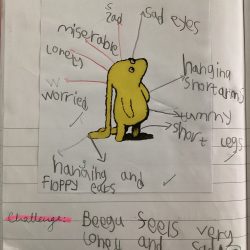 sad
sad eyes
miserable
lonely
hanging
short arms
worried
tummy
short legs
hanging and
floppy ears
Challenge:
Beegu feels very
lonely and